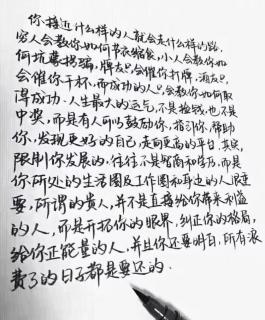 你接近什么样的人就会走什么样的路.
穷人会教你如何节衣缩食,小人会教你如
何坑蒙拐骗,牌友只会催你打牌,酒友只
会催你干杯,而成功的人只会教你如何取
得成功.人生最大的运气,不是捡钱,也不是
中奖,而是有人可以鼓励你,指引你,帮助
你,发现更好的自己,走向更高的平台.其实,
限制你发展的,往往不是智商和学历,而是
你所处的生活圈及工作圈和身边的人很重
要,所谓的贵人,并不是直接给你带来利益
的人,而是开拓你的眼界,纠正你的格局,
给你正能量的人,并且你还要明白,所有浪
费了的日子都是要还的.